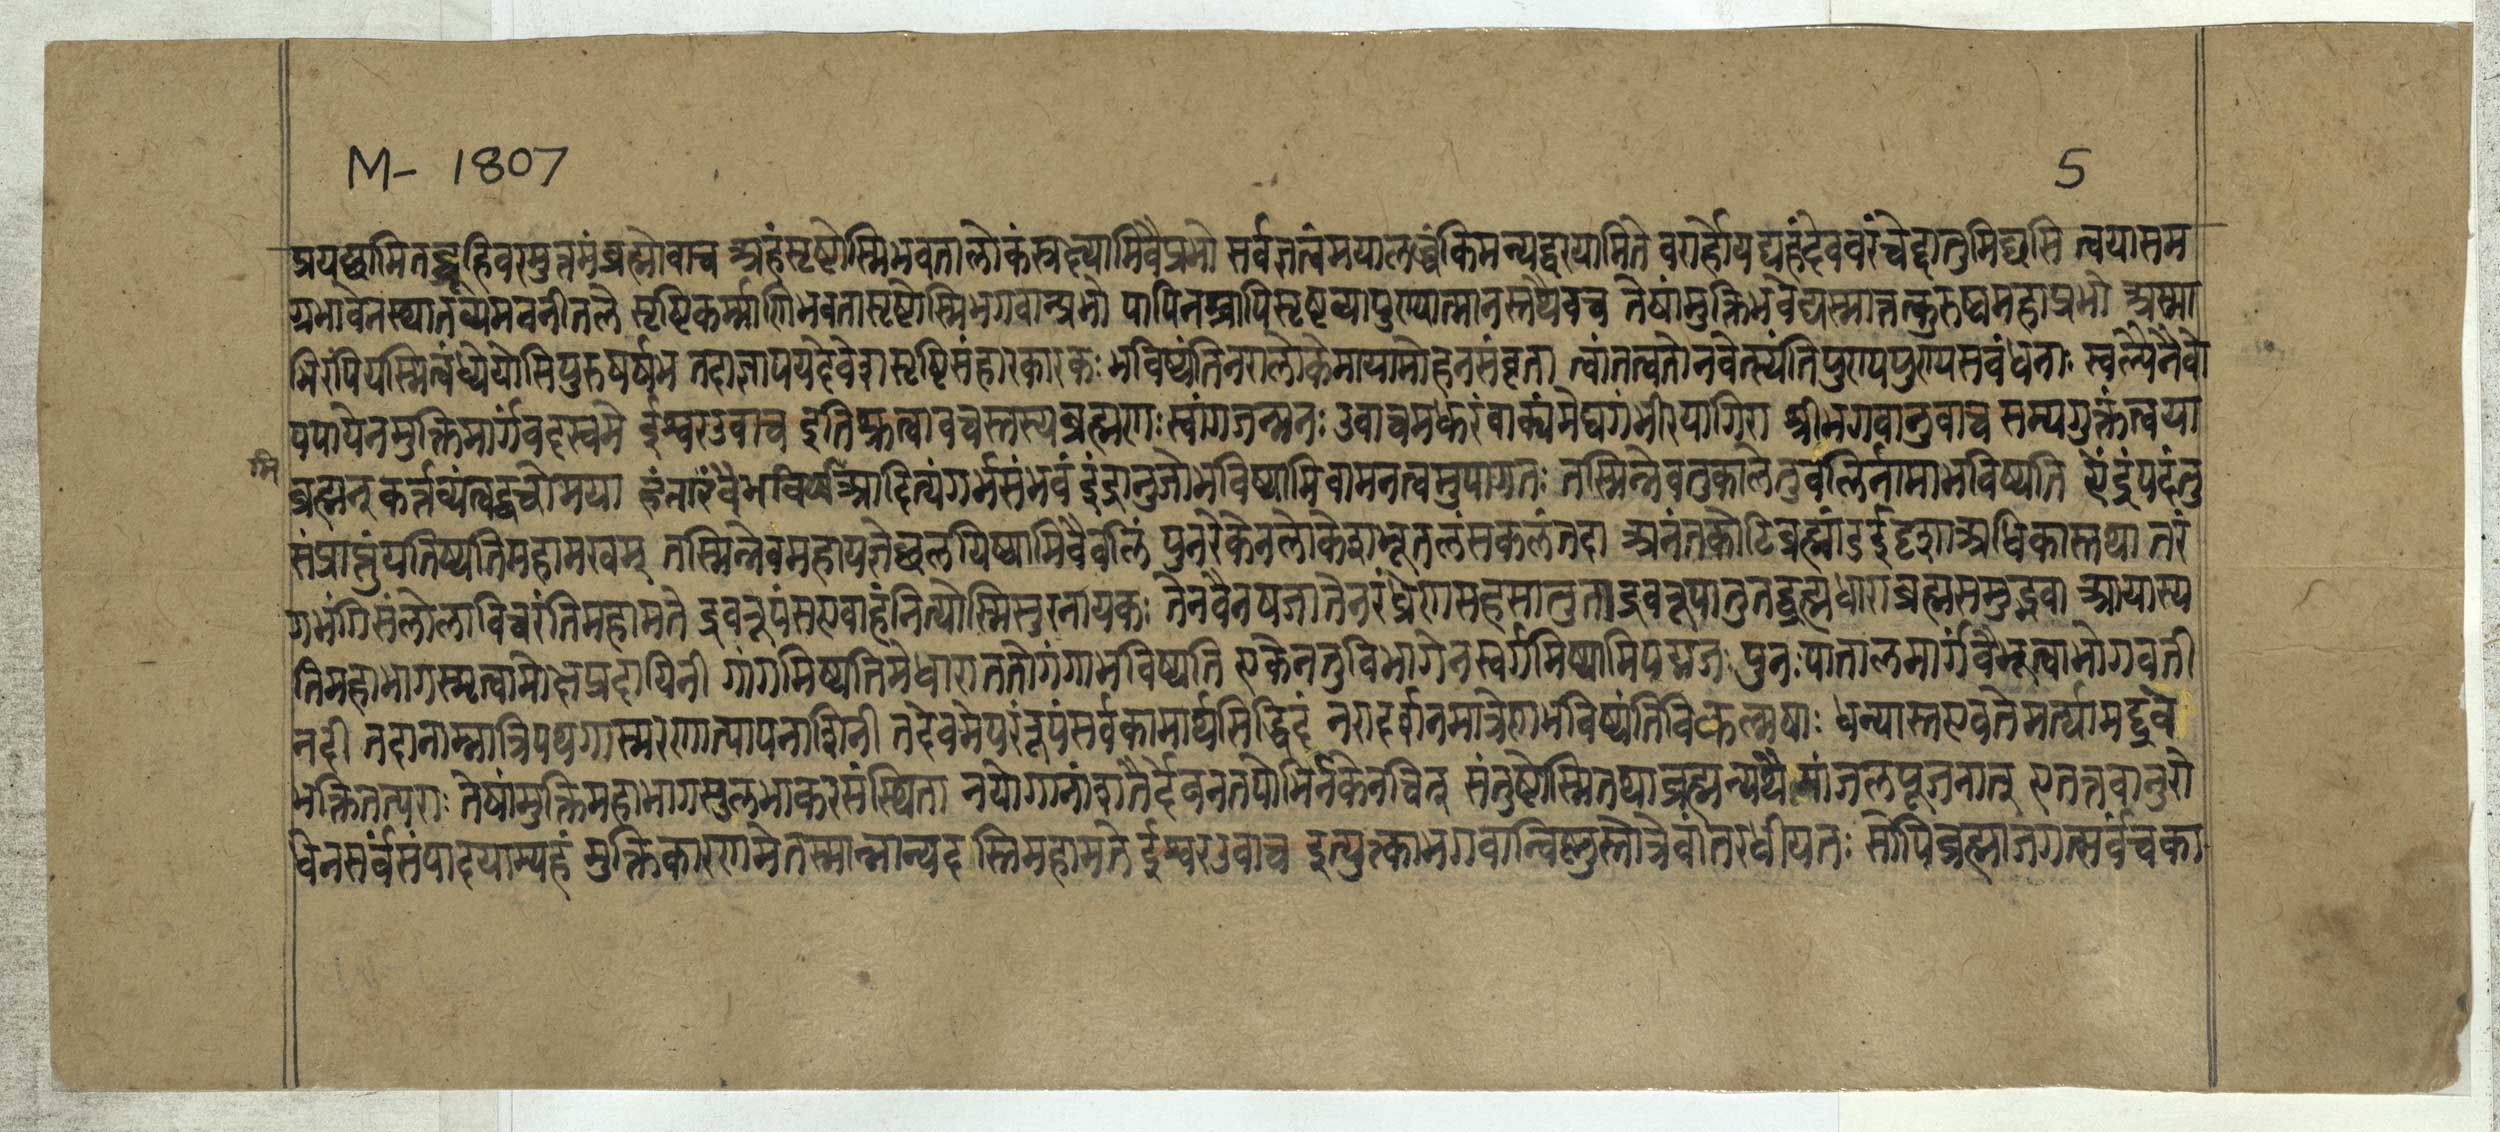 M- 1807
5
प्रयछामितद्ब्रूहिवरमुत्तमंब्रह्मोवाच अहंसृष्टोस्मिभवतालोकंस्रक्ष्यामिवैप्रभो सर्वज्ञत्वंमयालब्धंकिमन्यद्वरयामिते वरार्होयद्यहंदेववरंचेद्दातुमिछसि त्वयासम
ग्रभावेनस्थातव्यमवनीतले सृष्टिकर्म्माणिभवतासृष्टोस्मिभगवान्प्रभो पापिनश्चापिसृष्टव्यापुण्यात्मानस्तथैवच तेषांमुक्तिर्भवेद्यस्मात्तत्कुरुष्वमहाप्रभो अस्मा
भिरपियस्मित्वंध्येयोसिपुरुषर्षभ तदाज्ञापयदेवेशसृष्टिसंहारकारकः भविष्यंतिनरालोकेमायामोहेनसंवृता त्वांतत्वतोनवेत्स्यंतिपुण्यपुण्यसबंधनाः स्वल्पेनैवो
पपायेनमुक्तिमार्गंवदस्वमे ईश्वरउवाच इतिश्रुत्वावचस्तस्यब्रह्मणःस्वांगजन्मनः उवाचमधुरंवाक्यंमेघगंभीरयागिरा श्रीभगवानुवाच सम्यगुक्तंत्वया
ब्रह्मन्कर्त्तव्यंत्वद्वचोमया हंतारंवैभविष्यआदित्यंगर्भसंभवं इंद्रानुजोभविष्यामिवामनत्वमुपागतः तस्मिन्नेवतुकालेतुबलिर्नामाभविष्यति ऐंद्रंपदंतु
मि
संप्राप्तुंयतिष्यतिमहामखम् तस्मिन्नेवमहायज्ञेछलयिष्यामिवैबलिं पुनरेकेनलोकेशभूतलंसकलंतदा अनंतकोटिब्रह्मांड दृशाअधिकास्तथा तरं
गभंगिसंलोलाविचरंतिमहामते द्रवरूपंसएवाहंनित्योस्मिसुरनायकः तेनवैनषजातेनरंध्रेणसहसातुता द्रवरूपातुतद्ब्रह्मधाराब्रह्मसमुद्भवा आयास्य
तिमहाभागस्मृत्वामोक्षप्रदायिनी गांगमिष्यतिमेधाराततोगंगाभविष्यति एकेनतुविभागेनस्वर्गमिष्यामिपद्मजः पुनःपातालमार्गंवैभूत्वाभोगवती
नदी तदानाम्नात्रिपथगास्मरणात्पापनाशिनी तदेवमेपरंरूपंसर्वकामार्थसिद्धिदं नरादर्शनमात्रेणभविष्यंतिविकल्मषाः धन्यास्तएवतेमर्त्यामद्द्रव
भक्तितत्पराः तेषांमुक्तिमहाभागसुलभाकरसंस्थिता नयोगानांशतैर्देवनतपोभिर्नकेनचित् संतुष्टोस्मितथाब्रह्मन्यथै मांजलपूजनात् एतत्तवानुरो
धेनसर्वंसंपादयाम्यहं मुक्तिकारणमेतस्मान्नान्यदस्तिमहामते ईश्वरउवाच इत्युत्काभगवान्विष्णुस्तत्रैवांतरधीयतः सोपिब्रह्माजगत्सर्वंचका